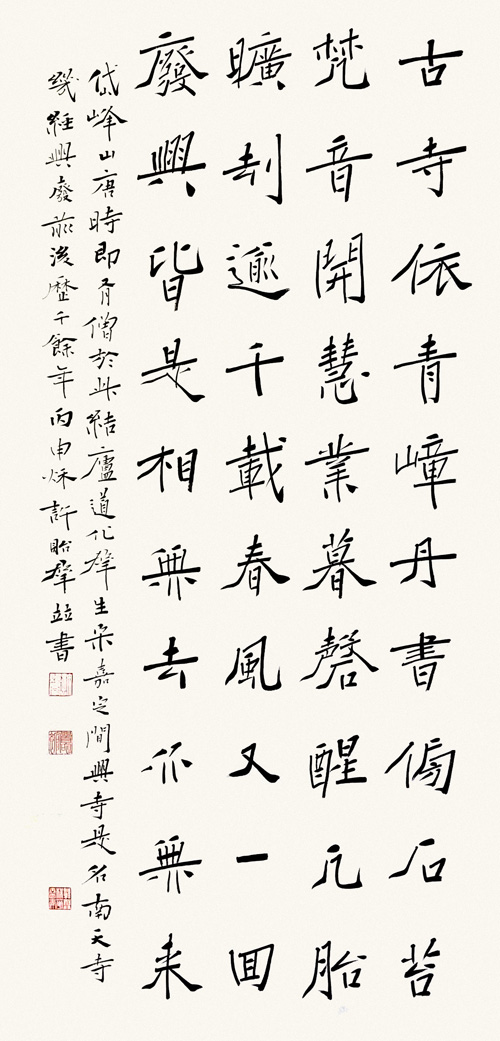 古寺依青嶂丹書傷石苔
梵音開慧業暮磬醒凡胎
曠刦逾千載春風又一回
廢興皆是相無去亦無來
岱峰山唐時即有僧於此結廬道化群生宋嘉定間興寺是名南天寺
幾經興廢前後歷千餘年丙申秋許貽群並書